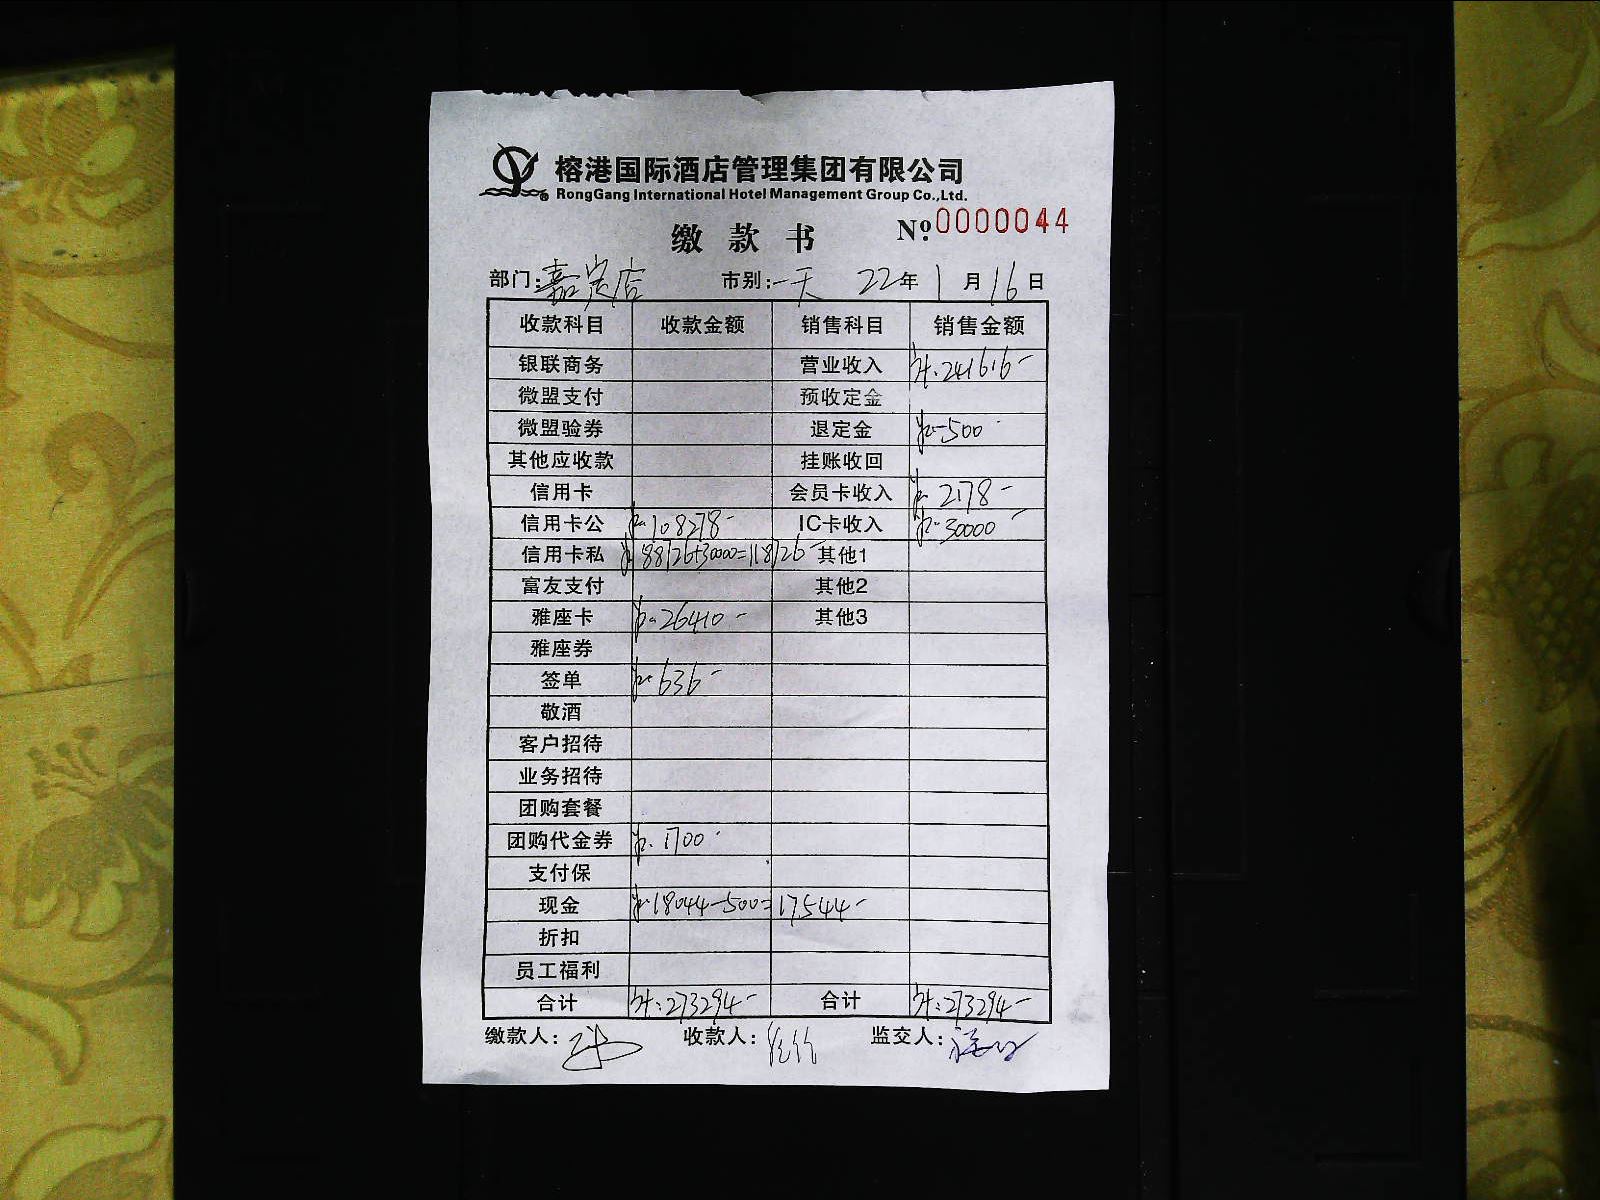 榕港国际酒店管理集团有限公司
RongGang International Hotel Management Group Co.,Ltd.
缴款书 Nº:0000044
部门:嘉定店 市别:一天 22年1月16日
收款科目 收款金额 销售科目 销售金额
银联商务 营业收入 计:241616-
微盟支付 预收定金
微盟验券 退定金 -500
其他应收款 挂账收回
信用卡 会员卡收入 2178-
信用卡公 108278- IC卡收入 30000-
信用卡私 88726+30000=118726- 其他1
富友支付 其他2
雅座卡 26410- 其他3
雅座券
签单 636-
敬酒
客户招待
业务招待
团购套餐
团购代金券 1700
支付保
现金 18044-500=17544-
折扣
员工福利
合计 计:273294- 合计 计:273294-
缴款人: 收款人: 监交人: